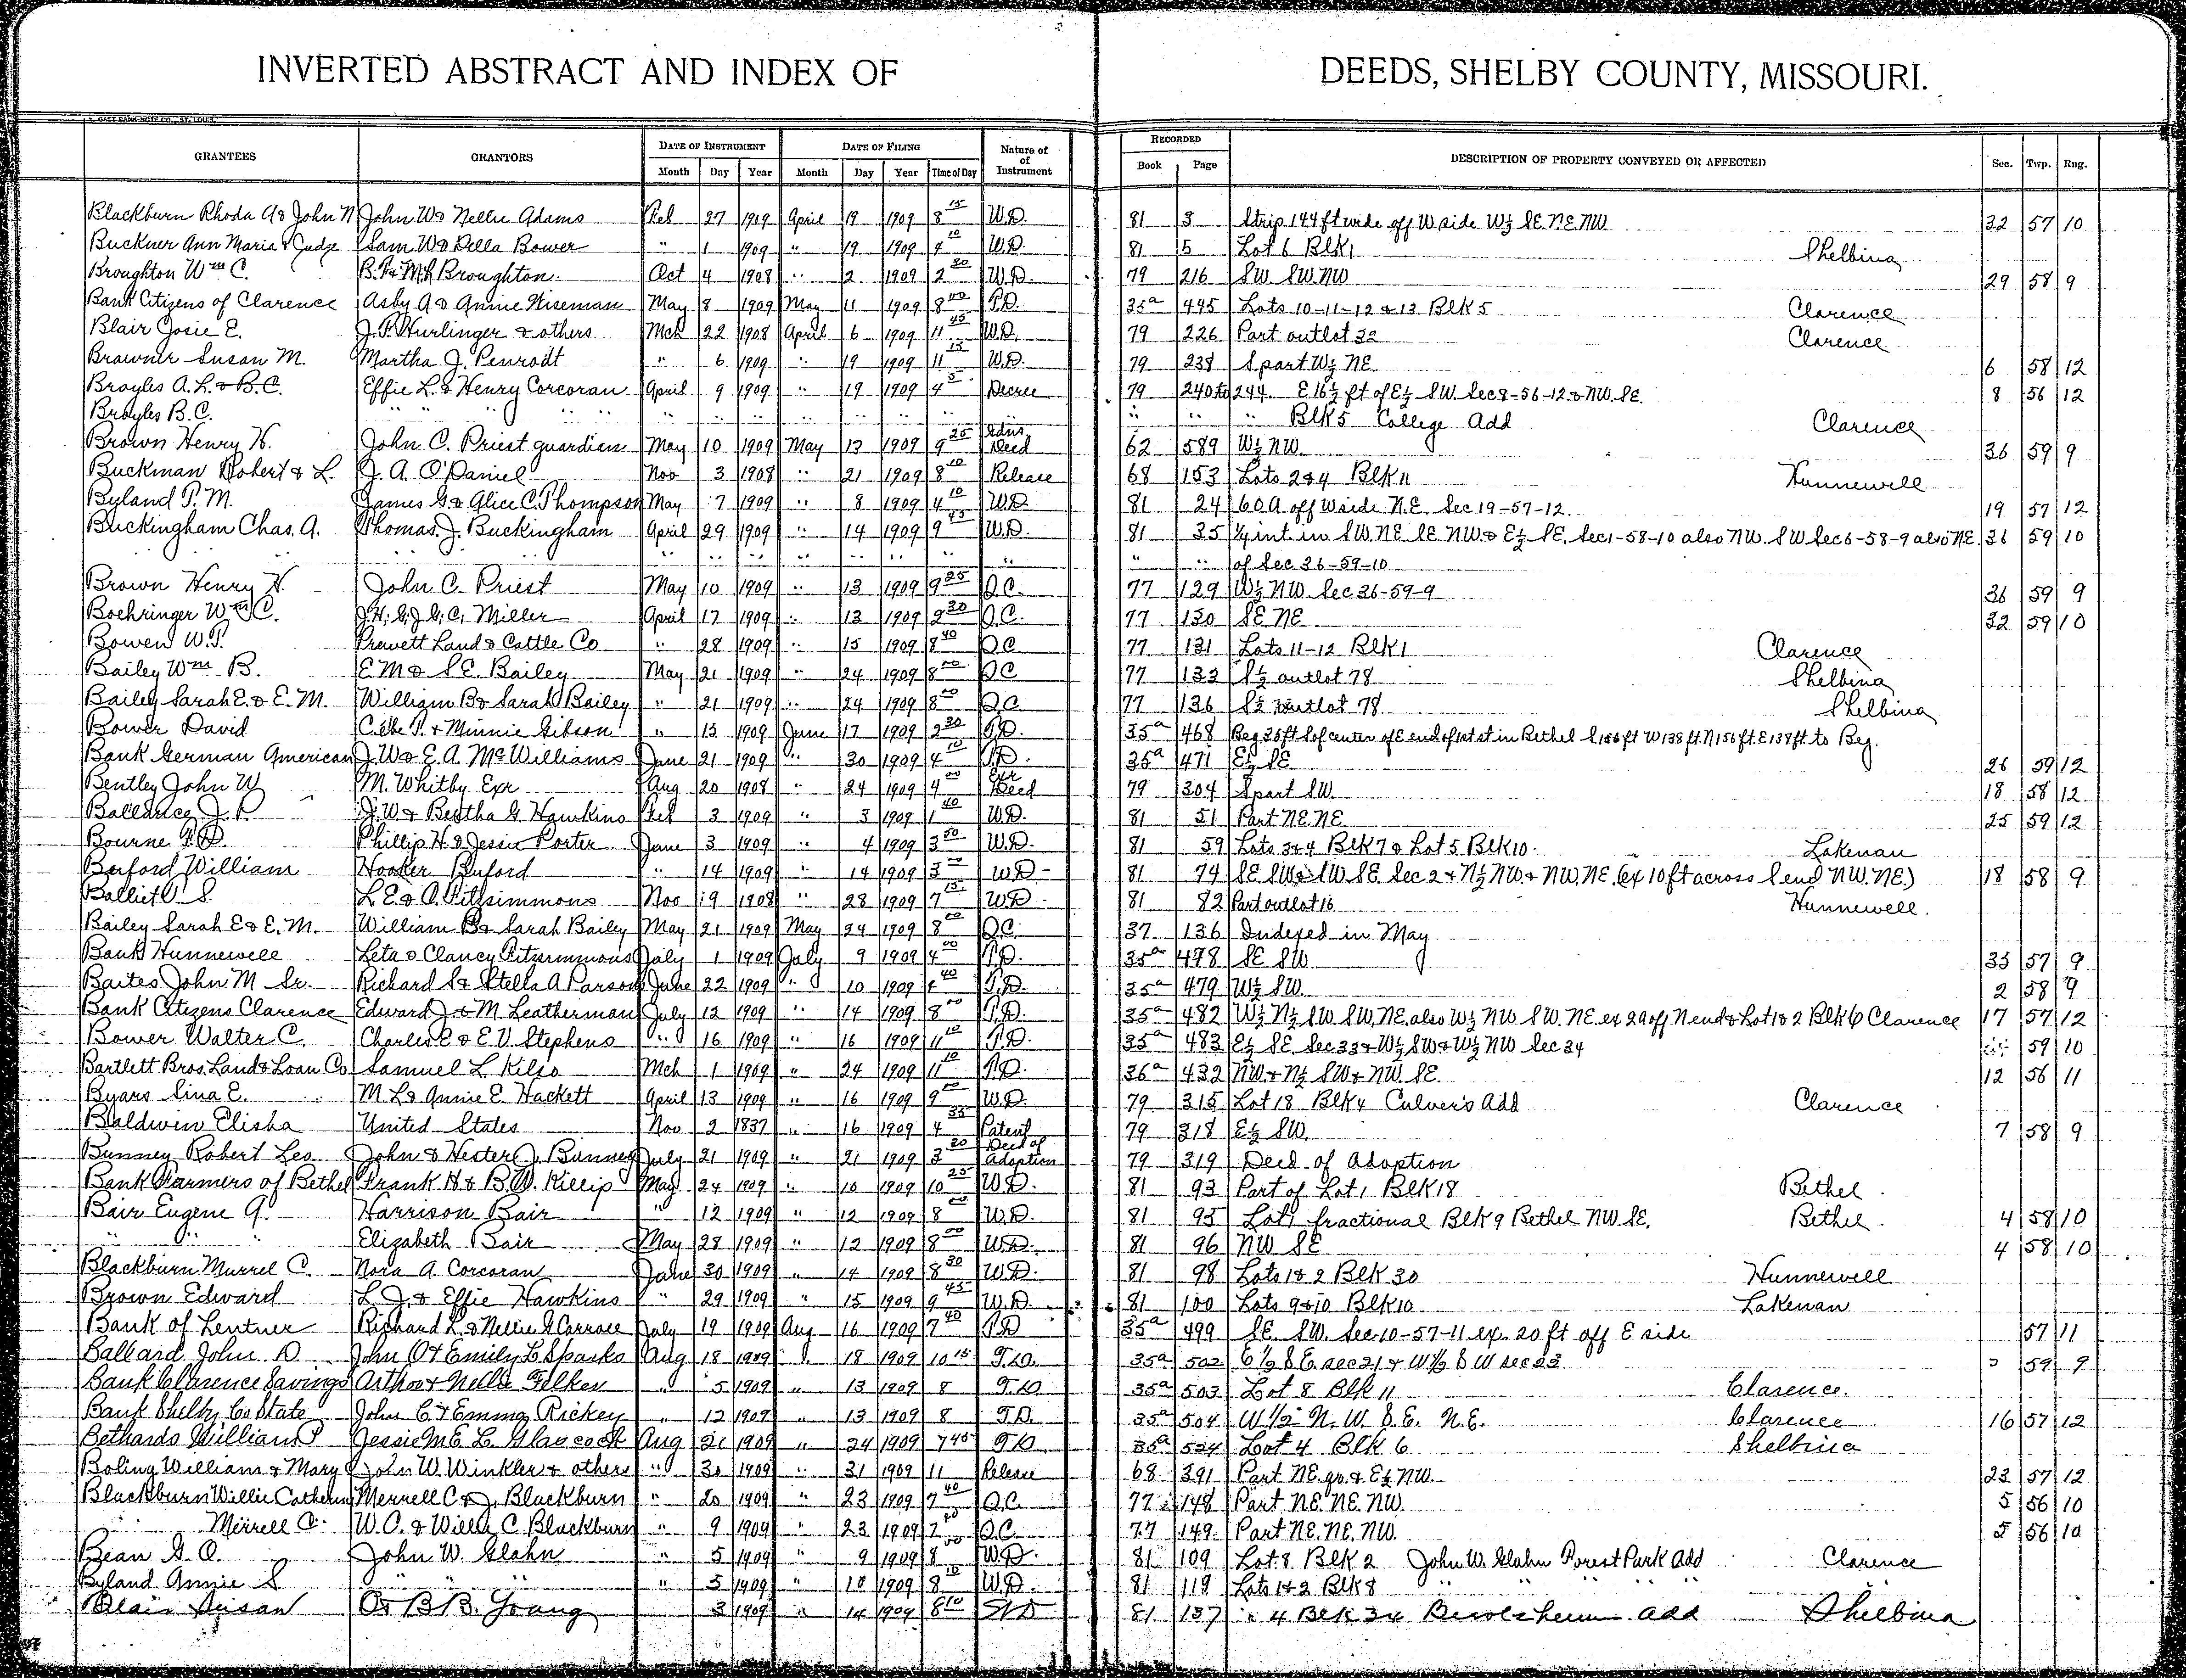 INVERTED ABSTRACT AND INDEX OF DEEDS, SHELBY COUNTY, MISSOURI.
GRANTEES GRANTORS DATE OF INSTRUMENT DATE OF FILING Nature of of Instrument RECORDED DESCRIPTION OF PROPERTY CONVEYED OR AFFECTED Sec. Twp. Rng.
Month Day Year Month Day Year Time of Day Book Page
Blackburn Rhoda A & John N John W & Nellie Adams Feb 27 1909 April 19 1909 8 15 W.D. 81 3 Strip 144 ft wide off W side W½ SE. NE. NW 32 57 10
Buckner Ann Maria & Judge Sam W & Della Bower " 1 1909 " 19 1909 4 10 W.D. 81 5 Lot 6 Blk 1 Shelbina
Broughton Wm C. B.F. & M.A. Broughton Oct 4 1908 " 2 1909 2 30 W.D. 79 216 SW SW. NW 29 58 9
Bank Citizens of Clarence Asby A & Annie Wiseman May 8 1909 May 11 1909 8 00 T.D. 35a 445 Lots 10-11-12 & 13 Blk 5 Clarence
Blair Josie E. J.F. Hurlinger & others Mch 22 1908 April 6 1909 11 45 W.D. 79 226 Part outlot 32 Clarence
Brawner Susan M. Martha J. Penrodt " 6 1909 " 19 1909 11 15 W.D. 79 238 S part W½ NE 6 58 12
Broyles A.L. & B.C. Effie L. & Henry Corcoran April 9 1909 " 19 1909 4 5 Decree 79 240 to 244 E 16½ ft of E½ SW Sec 8-56-12 & NW. SE. 8 56 12
Broyles B.C. " " " " " " " " " " " " " Blk 5 College Add Clarence
Brown Henry H. John C. Priest guardian May 10 1909 May 13 1909 9 25 Gdns Deed 62 589 W½ NW. 36 59 9
Buckman Robert & L. J.A. O'Daniel Nov 3 1908 " 21 1909 8 10 Release 68 153 Lots 2 & 4 Blk 11 Hunnewell
Byland P.M. James G. & Alice C. Thompson May 7 1909 " 8 1909 4 10 W.D. 81 24 60 A off W side N.E. Sec 19-57-12. 19 57 12
Buckingham Chas. A. Thomas J. Buckingham April 29 1909 " 14 1909 9 45 W.D. 81 35 ¼ int in SW. NE. SE. NW. & E½ SE. Sec 1-58-10 also NW. SW Sec 6-58-9 also NE. 36 59 10
" " " " " " " " " of Sec 36-59-10
Brown Henry H. John C. Priest May 10 1909 " 13 1909 9 25 Q.C. 77 129 W½ NW. Sec 36-59-9 36 59 9
Boehringer Wm C. J.H. G.J. G.C. Miller April 17 1909 " 13 1909 9 30 Q.C. 77 130 SE NE 32 59 10
Bowen W.P. Prewett Land & Cattle Co " 28 1909 " 15 1909 8 40 Q.C. 77 131 Lots 11-12 Blk 1 Clarence
Bailey Wm B. E M & S.E. Bailey May 21 1909 " 24 1909 8 00 Q.C. 77 133 S½ outlot 78 Shelbina
Bailey Sarah E. & E.M. William B & Sarah Bailey " 21 1909 " 24 1909 8 00 Q.C. 77 136 S½ outlot 78 Shelbina
Bower David & Minnie Gibson " 13 1909 June 17 1909 2 30 T.D. 35a 468 Beg 35 ft S of center of E end of 1st st in Bethel S 156 ft W 138 ft. N 156 ft. E 138 ft. to Beg.
Bank German American J.W. & E.A. McWilliams June 21 1909 " 30 1909 4 10 T.D. 35a 471 E½ SE 26 59 12
Bentley John W M. Whitby Exr Aug 20 1908 " 24 1909 4 00 Exr Deed 79 304 S part SW. 18 58 12
Ballance J.P. J.W. & Bertha G. Hawkins Feb 3 1909 " 3 1909 1 40 W.D. 81 51 Part NE. NE 25 59 12
Bourne Phillip H. & Jessie Porter June 3 1909 " 4 1909 3 50 W.D. 81 59 Lots 3 & 4 Blk 7 & Lot 5 Blk 10 Lakenan
Buford William Hooker Buford " 14 1909 " 14 1909 3 00 W.D. 81 74 SE SW & SW. SE. Sec 2 & N½ NW. & NW. NE. (ex 10 ft across S end NW. NE.) 18 58 9
Balliet O S. L.E. & O. Fitzsimmons Nov 19 1908 " 28 1909 7 15 W.D. 81 82 Part outlot 16 Hunnewell.
Bailey Sarah E & E.M. William B & Sarah Bailey May 21 1909 May 24 1909 8 00 Q.C. 37 136 Indexed in May
Bank Hunnewell Leta & Clancy Fitzsimmons July 1 1909 July 9 1909 4 00 T.D. 35a 478 SE SW 33 57 9
Baites John M Sr. Richard S & Stella A Parsons June 22 1909 " 10 1909 4 40 T.D. 35a 479 W½ SW 2 58 9
Bank Citizens Clarence Edward J & M. Leatherman July 12 1909 " 14 1909 8 00 T.D. 35a 482 W½ N½ SW SW. NE. also W½ NW SW. NE. ex 2 a off N end & Lot 1 & 2 Blk 6 Clarence 17 57 12
Bower Walter C. Charles E & E.V. Stephens " 16 1909 " 16 1909 11 10 T.D. 35a 483 E½ SE. Sec 33 & W½ SW & W½ NW Sec 34 59 10
Bartlett Bros. Land & Loan Co Samuel L Kilso Mch 1 1909 " 24 1909 11 10 T.D. 36a 432 NW. & N½ SW & NW. SE. 12 56 11
Byars Sina E. M.L. & Annie E. Hackett April 13 1909 " 16 1909 9 00 W.D. 79 315 Lot 18 Blk 4 Culver's Add Clarence
Baldwin Elisha United States Nov 2 1837 " 16 1909 4 35 Patent 79 318 E½ SW. 7 58 9
Bunney Robert Leo John & Hester J. Bunney July 21 1909 " 21 1909 3 20 Deed of Adoption 79 319 Deed of Adoption
Bank Farmers of Bethel Frank H & B.W. Killip May 24 1909 " 10 1909 10 25 W.D. 81 93 Part of Lot 1 Blk 18 Bethel
Bair Eugene G. Harrison Bair " 12 1909 " 12 1909 8 00 W.D. 81 95 Lot 1 fractional Blk 9 Bethel NW SE. Bethel 4 58 10
" " " Elizabeth Bair May 28 1909 " 12 1909 8 00 W.D. 81 96 NW SE 4 58 10
Blackburn Murrel C. Nora A. Corcoran June 30 1909 " 14 1909 8 30 W.D. 81 98 Lots 1 & 2 Blk 30 Hunnewell
Brown Edward L.J. & Effie Hawkins " 29 1909 " 15 1909 9 45 W.D. 81 100 Lots 9 & 10 Blk 10 Lakenan
Bank of Lentner Richard L. & Nellie G Carroll July 19 1909 Aug 16 1909 7 40 T.D 35a 499 SE. SW. Sec 10-57-11 ex. 20 ft off E side 57 11
Ballard John D. John O & Emily L Sparks Aug 18 1909 " 18 1909 10 15 T.D. 35a 502 E ½ S E sec 21 & W ½ S W sec 23 59 9
Bank Clarence Savings Arthor & Nellie Felker " 5 1909 " 13 1909 8 T.D 35a 503 Lot 8 Blk 11 Clarence.
Bank Shelby Co State John C. & Emma Rickey " 12 1909 " 13 1909 8 T.D. 35a 504 W ½ N. W. S. E. N.E. Clarence 16 57 12
Bethards William P Jessie M E L Glascock Aug 21 1909 " 24 1909 7 45 T.D 35a 524 Lot 4 Blk 6 Shelbina
Boling William & Mary John W. Winkler & others " 30 1909 " 31 1909 11 Release 68 391 Part NE. qr. & E½ NW. 23 57 12
Blackburn Willie Cathern Merrell C & J. Blackburn " 20 1909 " 23 1909 7 40 Q.C. 77 148 Part NE. NE. NW. 5 56 10
" Merrell C. W.C. & Willie C Blackburn " 9 1909 " 23 1909 7 40 Q.C. 77 149 Part NE. NE. NW. 5 56 10
Bean G.O. John W. Glahn " 5 1909 " 9 1909 8 00 W.D. 81 109 Lot 8 Blk 2 John W. Glahn Forest Park Add Clarence
Byland Annie S " " " " 5 1909 " 10 1909 8 10 W.D. 81 118 Lots 1 & 2 Blk 8 " " " "
Blair Susan B B. Young 3 1909 " 14 1909 8 10 W D 81 137 " 4 Blk 34 add Shelbina